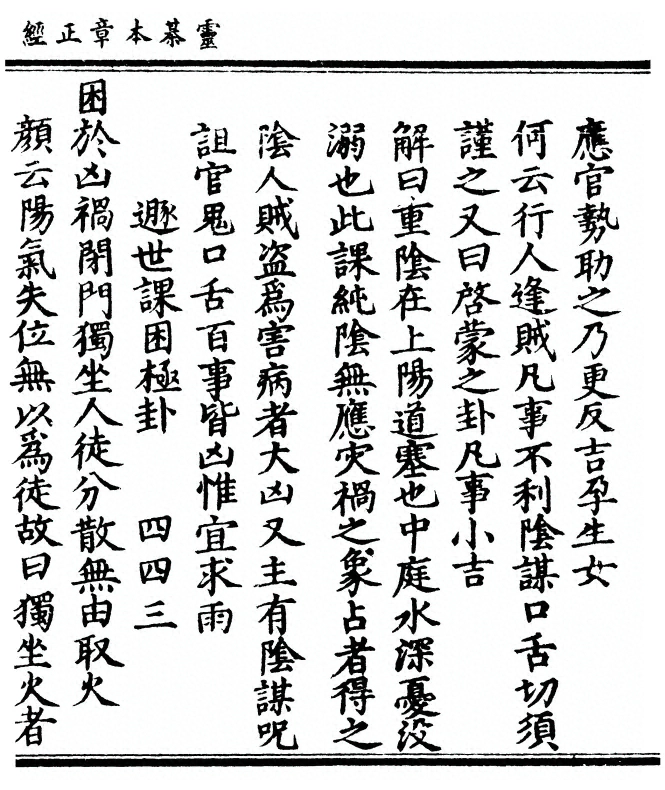 靈棊本章正經
應官勢助之乃更反吉孕生女
何云行人逢賊凡事不利陰謀口舌切須
謹之又曰啓蒙之卦凡事小吉
解曰重陰在上陽道塞也中庭水深憂没
溺也此課純陰無應灾禍之象占者得之
陰人賊盗為害病者大凶又主有陰謀呪
詛官鬼口舌百事皆凶惟宜求雨
遯世課困極卦　四四三
困於凶禍閉門獨坐人徒分散無由取火
顔云陽氣失位無以為徒故曰獨坐火者